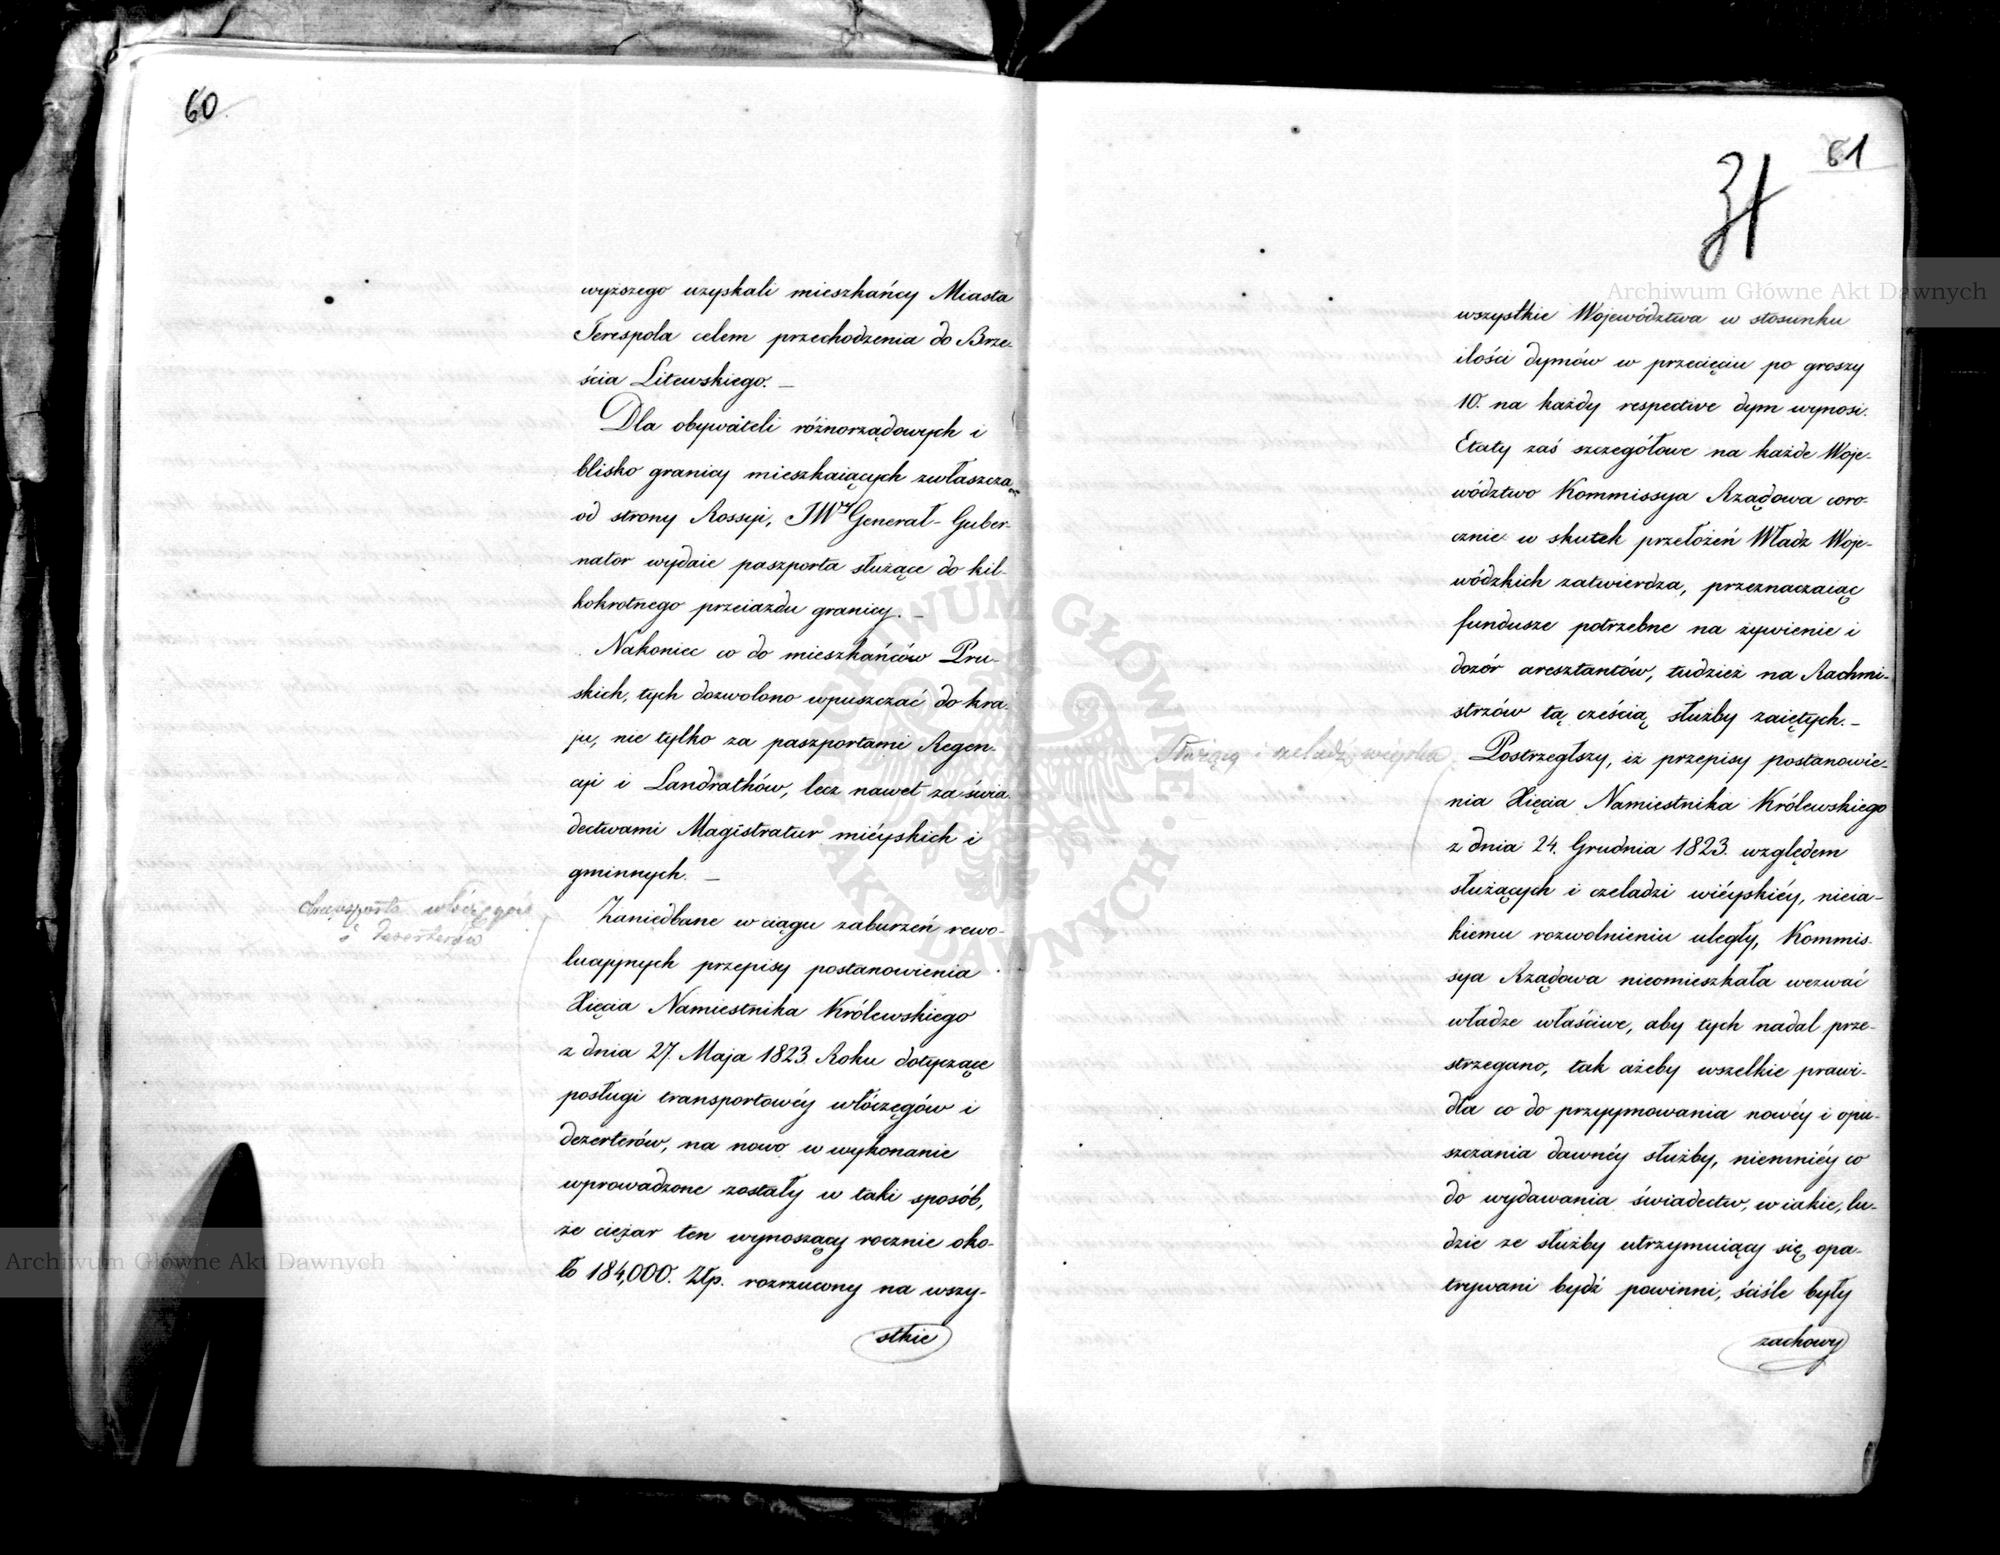 60
wyższego uzyskali mieszkańcy Miasta
Terespola celem przechodzenia do Brze-
ścia Litewskiego. —
Dla obywateli różnorządowych i
blisko granicy mieszkaiących zwłaszcza
od strony Rossyi, JWny Generał-Guber-
nator wydaie paszporta służące do kil-
kokrotnego przeiazdu granicy. —
Nakoniec co do mieszkańców Pru-
skich, tych dozwolono wpuszczać do kra-
ju, nie tylko za paszportami Regen-
cyi i Landrathów, lecz nawet za świa-
dectwami Magistratur mieyskich i
gminnych. —
transporta włóczęgów
i dezerterów
Zaniedbane w ciągu zaburzeń rewo-
lucyjnych przepisy postanowienia
Xięcia Namiestnika Królewskiego
z dnia 27. Maja 1823 Roku dotyczące
posługi transportowéy włóczęgów i
dezerterów, na nowo w wykonanie
wprowadzone zostały w taki sposób,
że ciężar ten wynoszący rocznie oko-
ło 184,000. Złp. rozrzucony na wszy-
stkie
61
31
wszystkie Województwa w stosunku
ilości dymów w przecięciu po groszy
10. na każdy respective dym wynosi.
Etaty zaś szczegółowe na każde Woje-
wództwo Kommissya Rządowa coro-
cznie w skutek przełożeń Władz Woje-
wódzkich zatwierdza, przeznaczaiąc
fundusze potrzebne na żywienie i
dozór aresztantów, tudzież na Rachmi-
strzów tą cześcią służby zaiętych. —
Służący i czeladź wieyska
Postrzegłszy, iż przepisy postanowie-
nia Xięcia Namiestnika Królewskiego
z dnia 24. Grudnia 1823. względem
służących i czeladzi wiéyskiéy, nieia-
kiemu rozwolnieniu uległy, Kommis-
sya Rządowa nieomieszkała wezwać
władze właściwe, aby tych nadal prze-
strzegano, tak ażeby wszelkie prawi-
dła co do przyymowania nowéy i opu-
szczania dawnéy służby, niemniéy co
do wydawania świadectw, w iakie, lu-
dzie ze służby utrzymuiący się opa-
trywani bydź powinni, ściśle były
zachowy
Archiwum Główne Akt Dawnych
Archiwum Główne Akt Dawnych
ARCHIWUM GŁÓWNE
AKT DAWNYCH